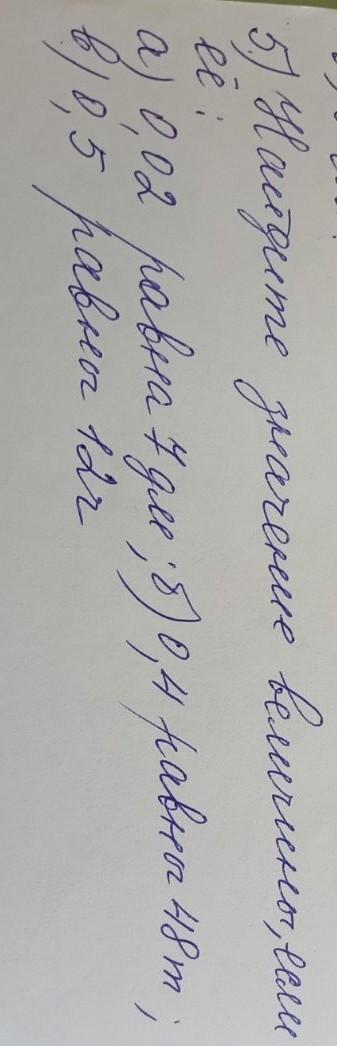 5) Найдите значение величины, если
её:
а) 0,02 равна 7 дм; б) 0,4 равны 48т;
в) 0,5 равны 12ч